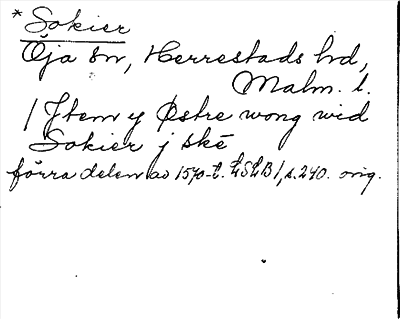 * Sokier
Öja sn, Herrestads hd,
Malm. l.
/ Jtem y Østre wong wid
Sokier j skē
förra delen av 1570-t. LSLB 1, s. 240. orig.